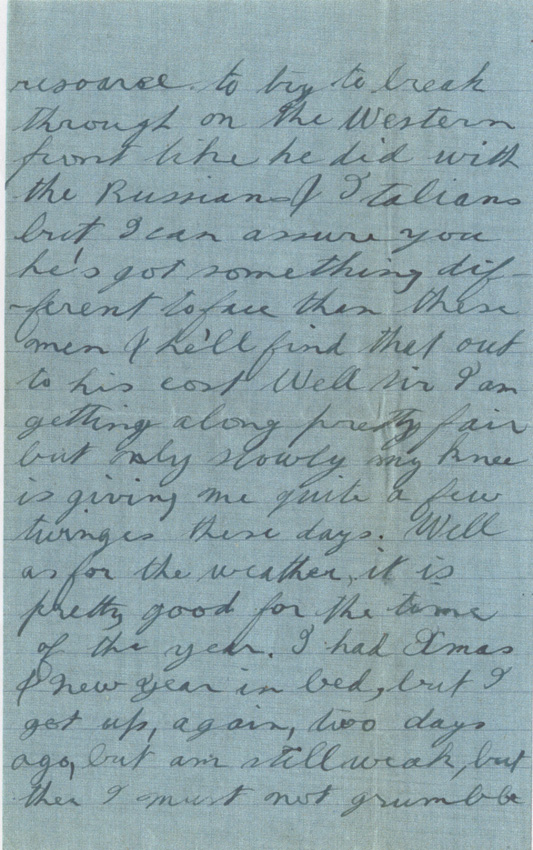 resource to try to break
through on the Western
front like he did with
the Russians & Italians
but I can assure you
he's got something dif-
-ferent to face than these
men & he'll find that out
to his cost Well Sir I am
getting along pretty fair
but only slowly my knee
is giving me quite a few
twinges these days. Well
as for the weather, it is
pretty good for the time
of the year. I had Xmas
& New Year in bed, but I
got up, again, two days
ago, but am still weak, but
then I must not grumble